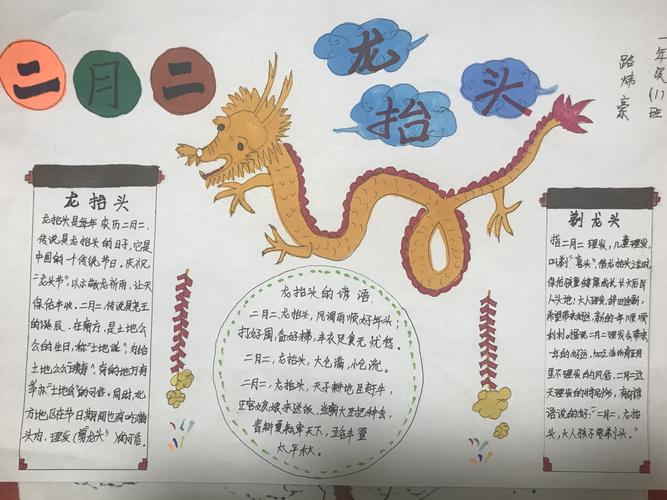 二月二
龙抬头
一年级(1)班
路炜豪
龙抬头
龙抬头是每年农历二月二,
传说是龙抬头的日子,它是
中国的一个传统节日。庆祝
"龙头节",以示敬龙祈雨,让天
保佑丰收。二月二,传说是尧王
的诞辰。在南方,是土地公
公的生日,称"土地诞",为给
土地公公"暖寿",有的地方有
举办"土地会"的习俗。同时,北
方地区在节日期间也有吃猪
头肉、理发(剪龙头)的习俗。
龙抬头的谚语
二月二,龙抬头,风调雨顺好年头;
打好囤,备好梯,丰衣足食无忧愁。
二月二,龙抬头,大仓满,小仓流。
二月二,龙抬头,天子耕地臣赶牛,
正宫娘娘来送饭,当朝大臣把种丢,
春耕夏耘率天下,五谷丰登
太平秋。
剃龙头
指二月二理发,儿童理发,
叫剃"喜头",借龙抬头之吉时,
保佑孩童健康成长,长大后出
人头地;大人理发,辞旧迎新,
希望带来好运,新的一年顺顺
利利。据说二月二理发会带来
一年的好运,
里不理发的风俗,二月二这
天理发的特别多,有俗
语说的好:"二月二,龙抬
头,大人孩子要剃头。"